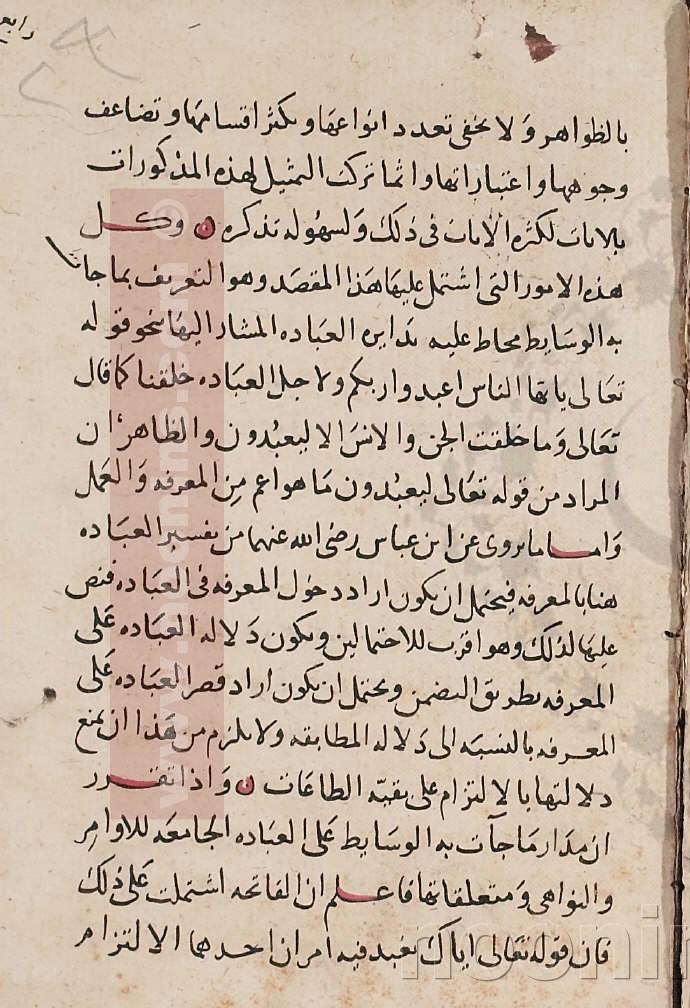 رابع
بالظواهر ولا يخفى تعدد انواعها وتكثر اقسامها وتضاعف
وجوهها واعتباراتها وانما تركت التمثيل لهذه المذكورات
بالايات لكثرة الايات في ذلك ولسهولة تذكره ن وكل
هذه الامور التي اشتمل عليها هذا المقصد وهو التعريف بما جات
به الوسايط محاط عليه بدايره العباده المشار اليها بنحو قوله
تعالى يايها الناس اعبدوا ربكم ولاجل العباده خلقنا كما قال
تعالى وما خلقت الجن والانس الا ليعبدون والظاهر ان
المراد من قوله تعالى ليعبدون ما هو اعم من المعرفه والعمل
واما ما يروى عن ابن عباس رضى الله عنهما من تفسير العباده
هنا بالمعرفه فيحتمل ان يكون اراد دخول المعرفه في العباده فنص
عليها لذلك وهو اقرب للاحتمالين ويكون دلاله العباده على
المعرفه بطريق التضمن ويحتمل ان يكون اراد قصر العباده على
المعرفه بالنسبه الى دلاله المطابقه ولا يلزم من هذا ان يمنع
دلالتها بالالتزام على بقيه الطاعات ن واذا تقرر
ان مدار ما جآت به الوسايط على العباده الجامعه للاوامر
والنواهي ومتعلقاتها فاعلم ان الفاتحه اشتملت على ذلك
فان قوله تعالى اياك نعبد فيه امران احدهما الالتزام
www.mechms.com
noonin